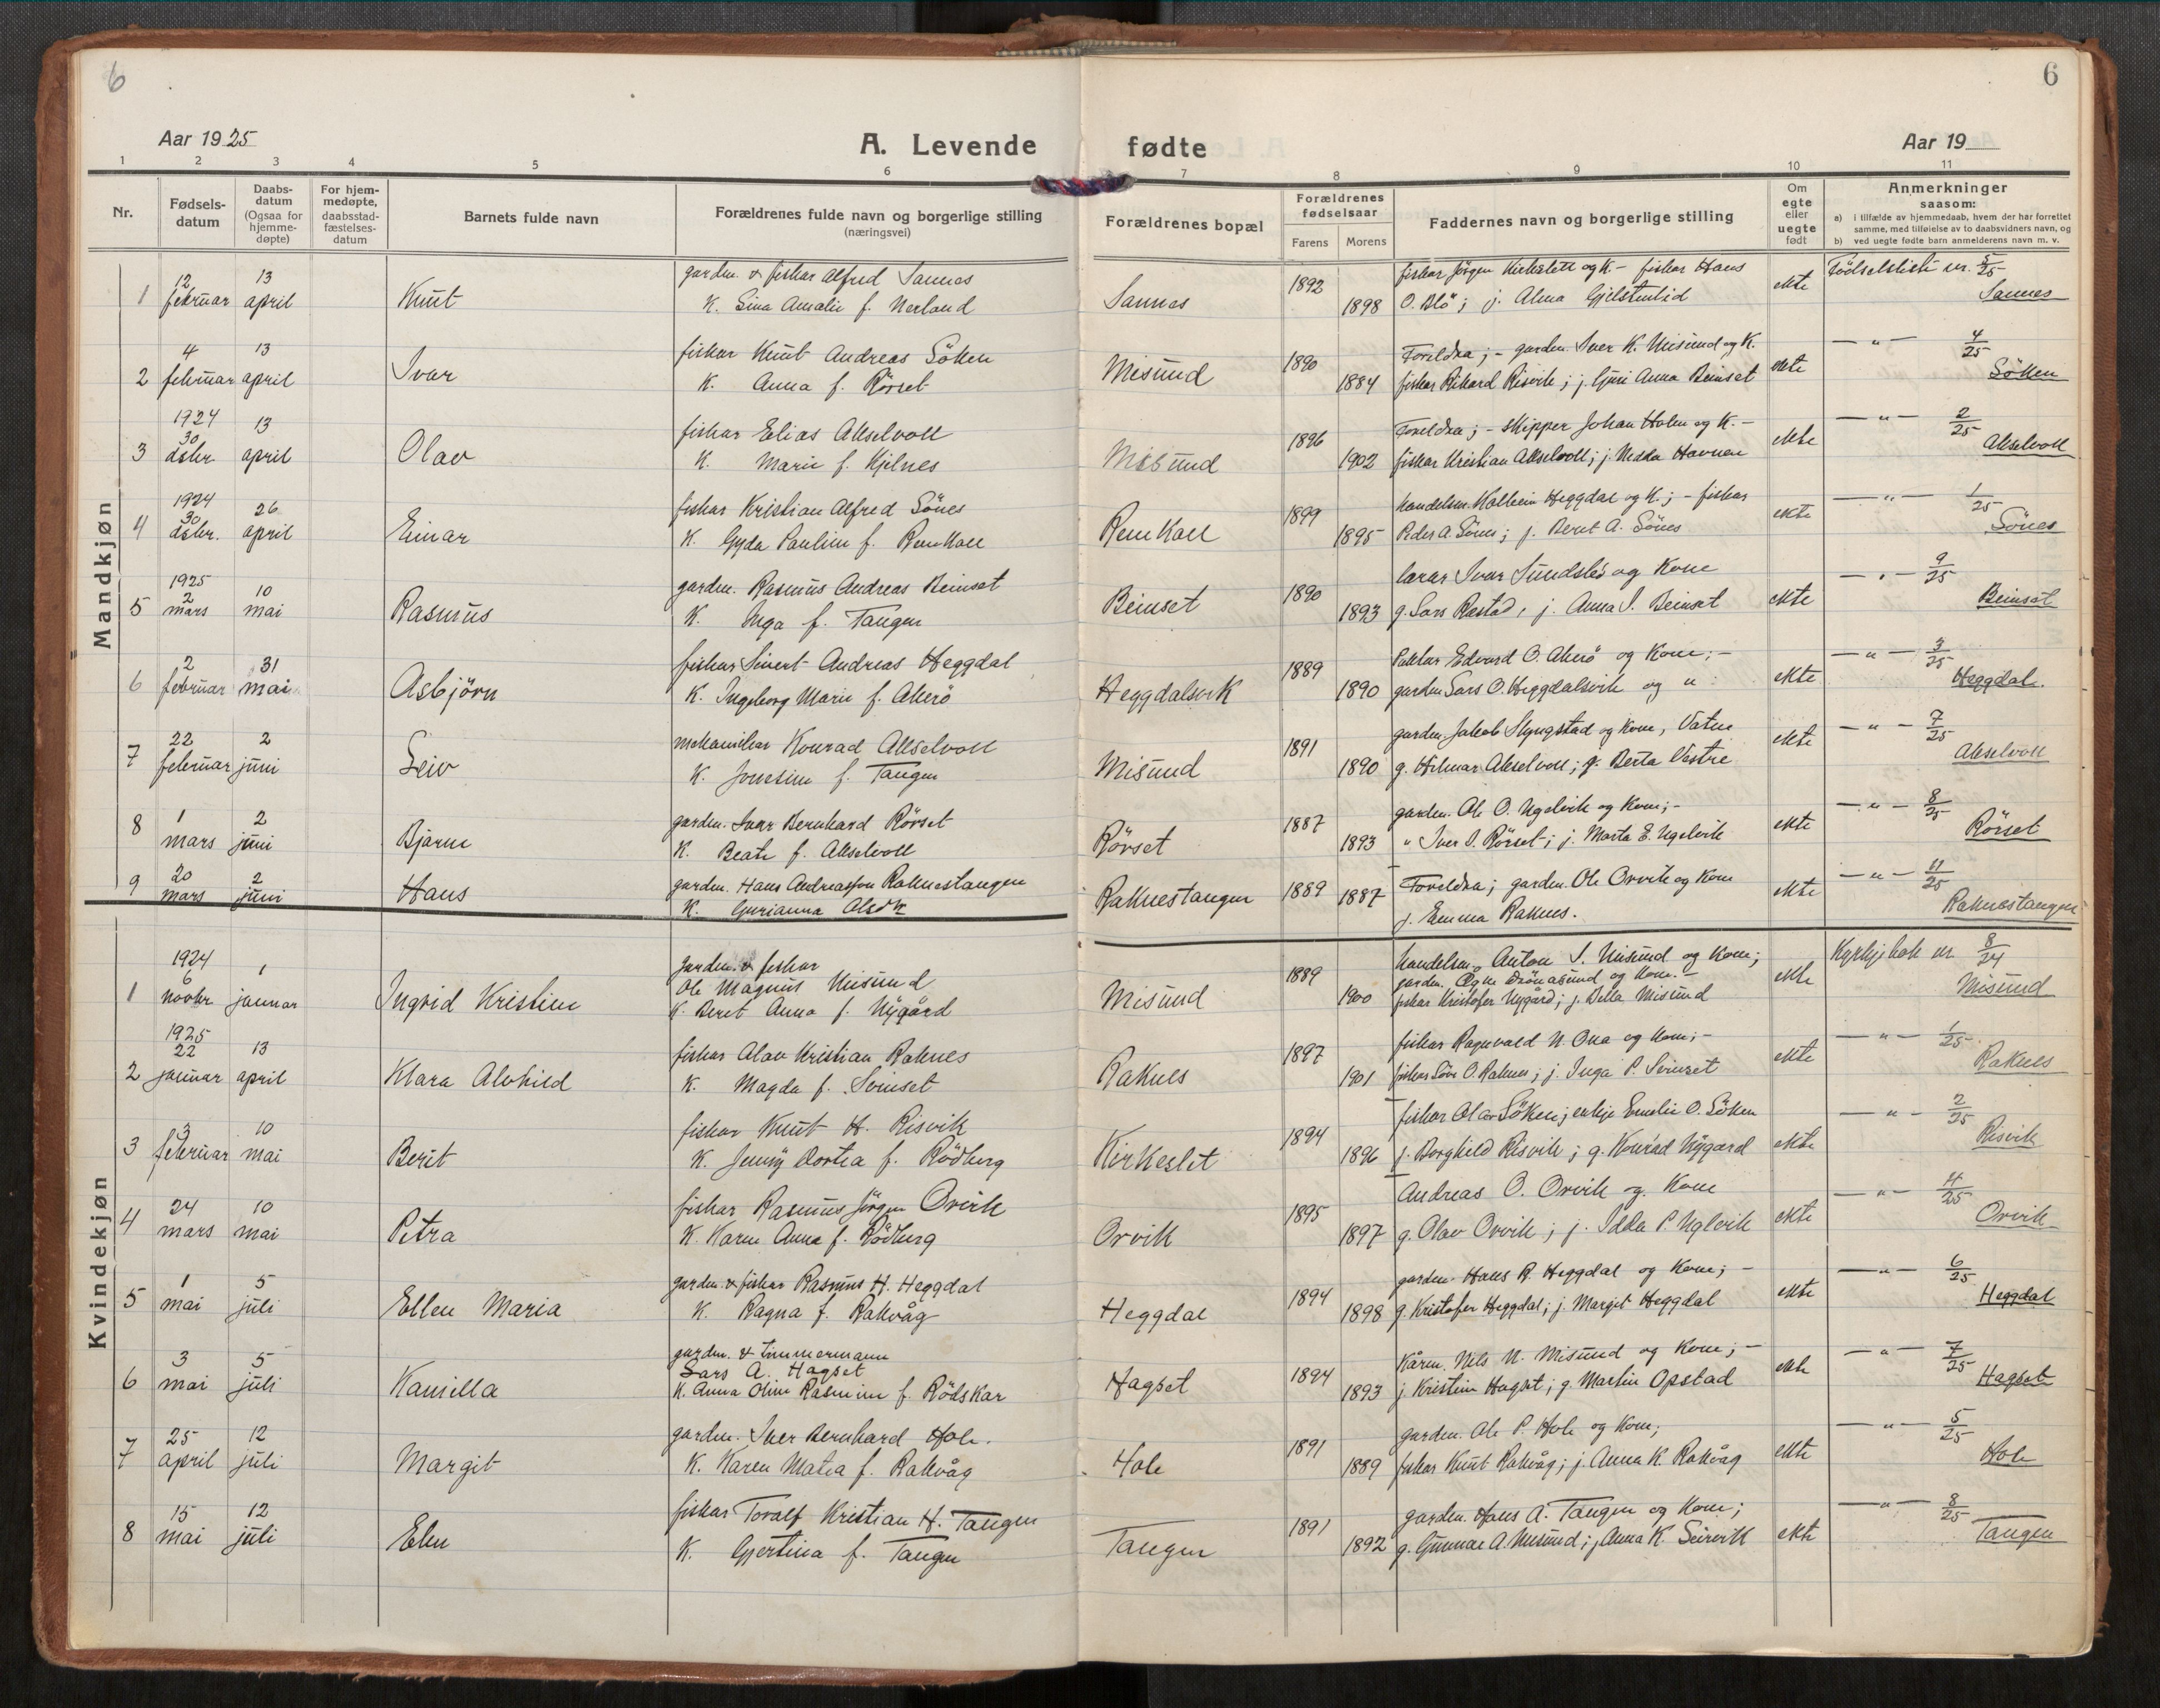 6
6
Aar 1925
A. Levende
fødte
Aar 19
1 2 3 4 5 6 7 8 9 10 11
Nr.
Fødsels-
datum
Daabs-
datum
(Ogsaa for
hjemme-
døpte)
For hjem-
medøpte,
daabsstad-
fæstelses-
datum
Barnets fulde navn
Forældrenes fulde navn og borgerlige stilling
(næringsvei)
Forældrenes bopæl
Forældrenes
fødselsaar
Farens Morens
Faddernes navn og borgerlige stilling
Om
egte
eller
uegte
født
Anmerkninger
saasom:
a) i tilfælde av hjemmedaab, hvem der har forrettet
samme, med tilføielse av to daabsvidners navn, og
b) ved uegte fødte barn anmelderens navn m. v.
Mandkjøn
12 13 garden. & fiskar Alfred Sannes 1892 fiskar Jörgen Kirkeslett og K. - fiskar Hans Fødselsliste nr. 5/25
1 februar april Knut K. Lina Amalie f. Nerland Sannes 1898 O. Blö; j. Alma Gjelstenlid ekte Sannes
4 13 fiskar Knut Andreas Söken 1890 Foreldra; - garden. Iver K. Misund og K. — " — 4/25
2 februar april Ivar K. Anna f. Rörset Misund 1884 fiskar Rikard Risvik; j. Guri Anna Beinset ekte Söken
1924
30 13 fiskar Elias Akselvoll 1896 Foreldra; - skipper Johan Holen og K. - — " — 2/25
3 dsbr. april Olav K. Marie f. Kjelnes Misund 1902 fiskar Kristian Akselvoll; j. Havnen ekte Akselvoll
1924
30 26 fiskar Kristian Alfred Sönes 1899 handelsm. Heggdal og K.; - fiskar — " — 1/25
4 dsbr. april Einar K. Gyda Pauline f. Remkall Remkall 1895 Peder A. Sönes; j. Beret A. Sönes ekte Sönes
1925
2 10 garden. Rasmus Andreas Beinset 1890 lærar Ivar Sundsbö og Kone — " — 9/25
5 mars mai Rasmus K. Inga f. Tangen Beinset 1893 g. Lars Restad, j. Anna I. Beinset ekte Beinset
2 31 fiskar Sivert Andreas Heggdal 1889 Edvard O. Akerö og Kone; - — " — 3/25
6 februar mai Asbjörn K. Ingeborg Marie f. Akerö Heggdalsvik 1890 garden Lars O. Heggdalsvik og " ekte Heggdal
22 2 mekanikar Konrad Akselvoll 1891 garden. Jakob Slyngstad og Kone, Vatne — " — 7/25
7 februar juni Leiv K. Jonesine f. Tangen Misund 1890 g. Hilmar Akselvoll; j. Berta Vestre ekte Akselvoll
1 2 garden. Ivar Bernhard Rörset 1887 garden. Ole O. Ugelvik og Kone; - — " — 8/25
8 mars juni Bjarne K. Beate f. Akselvoll Rörset 1893 " Iver I. Rörset; j. Marta E. Ugelvik ekte Rörset
20 2 garden. Hans Andreasson Raknestangen 1889 1887 Foreldra; garden. Ole Orvik og Kone — " — 11/25
9 mars juni Hans K. Gurianna Raknestangen j. Emma Raknes. ekte Raknestangen
Kvindekjøn
1924 garden. & fiskar handelsm. Anton I. Misund og Kone; Kyrkjebok nr. 8/24
6 1 Ole Magnus Misund 1889 garden. Drönasund og Kone. -
1 novbr januar Ingrid Kristine K. Beret Anna f. Nygård Misund 1900 fiskar Kristofer Nygård; j. Della Misund ekte Misund
1925
22 13 fiskar Olav Kristian Raknes 1897 fiskar Ragnvald N. Ona og Kone; - — " — 1/25
2 januar april Klara Alvhild K. Magda f. Sveinset Raknes 1901 fiskar O. Raknes; j. Inga P. Sveinset ekte Raknes
3 10 fiskar Knut H. Risvik 1894 fiskar Olav Söken; enkje Emelie O. Söken — " — 2/25
3 februar mai Berit K. Jenny Dortea f. Rödberg Kirkeslet 1896 j. Borghild Risvik; g. Konrad Nygard ekte Risvik
24 10 fiskar Rasmus Jörgen Orvik 1895 Andreas O. Orvik og Kone — " — 4/25
4 mars mai Petra K. Karen Anna f. Rödberg Orvik 1897 g. Olav Orvik; j. Idda P. Uglvik ekte Orvik
1 5 garden. & fiskar Rasmus H. Heggdal 1894 garden. Hans R. Heggdal og Kone; - — " — 6/25
5 mai juli Ellen Maria K. Ragna f. Rakvåg Heggdal 1898 g. Kristofer Heggdal; j. Margit Heggdal ekte Heggdal
3 5 garden. & timmermann
Lars A. Hagset 1894 Nils N. Misund og Kone; - — " — 7/25
6 mai juli Kamilla K. Anna Oline Rasmine f. Rödskar Hagset 1893 j. Kristine Hagset; g. Martin Opstad ekte Hagset
25 12 garden. Iver Bernhard Hole. 1891 garden. Ole P. Hole og Kone; — " — 5/25
7 april juli Margit K. Karen Matea f. Rakvåg Hole 1889 fiskar Knut Rakvåg; j. Anna K. Rakvåg ekte Hole
15 12 fiskar Toralf Kristian H. Tangen 1891 garden. Hans A. Tangen og Kone; — " — 8/25
8 mai juli Elen K. Gjertina f. Tangen Tangen 1892 g. Gunnar A. Misund; j. Anna K. ekte Tangen